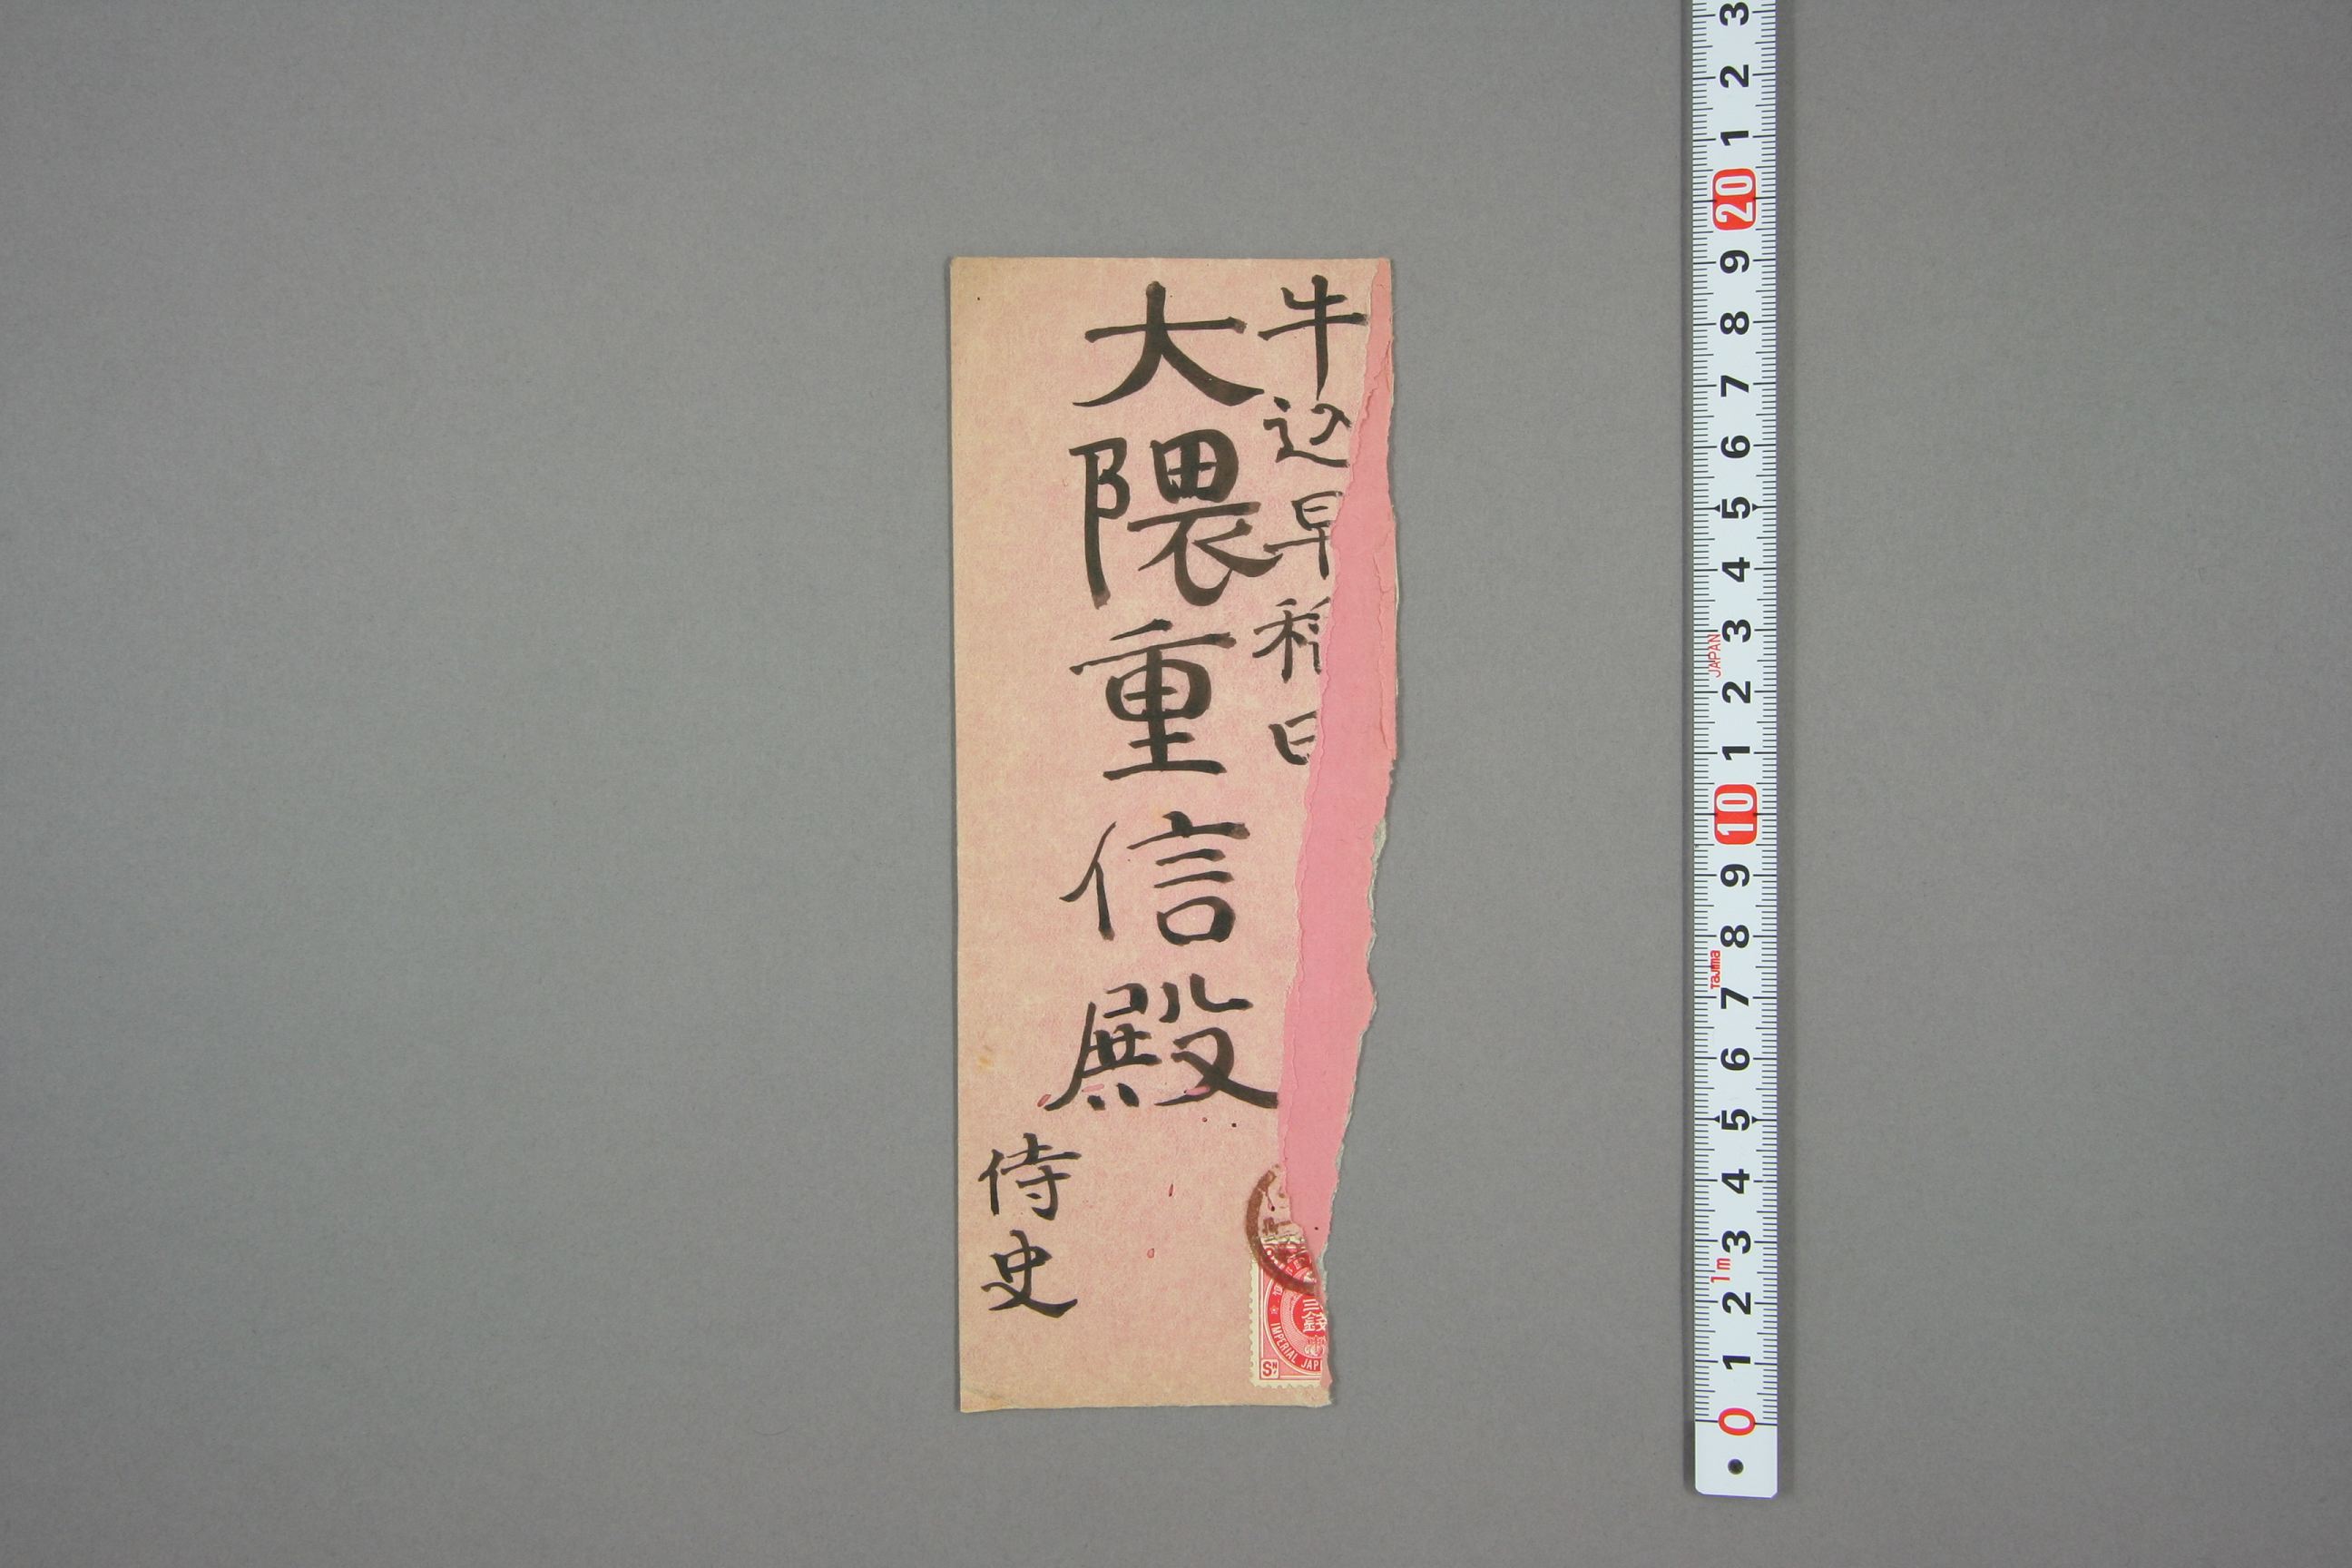 牛込早稲田
大隈重信殿
侍史
三銭
IMPERIAL JAP
Sn
3 2 1 20 9 8 7 6 5 4 3 2 1 10 9 8 7 6 5 4 3 2 1 0
JAPAN
Tajima
1m